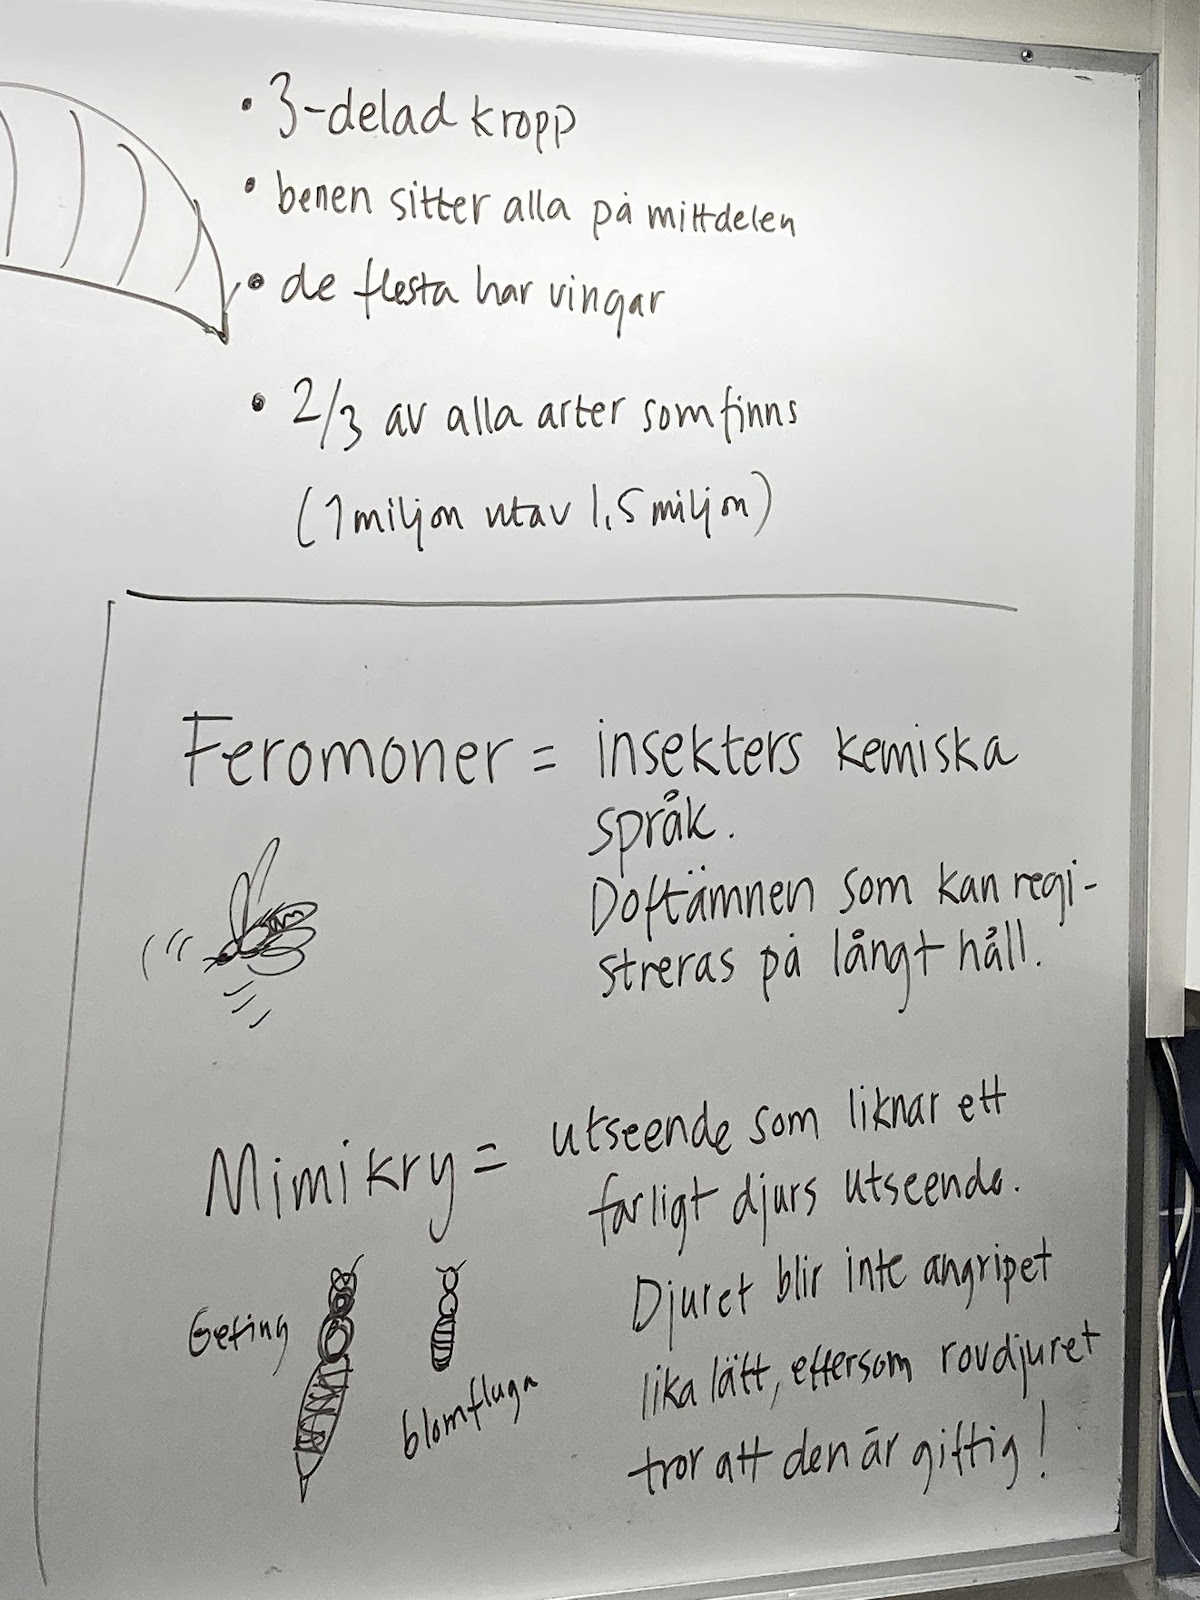 • 3-delad kropp
• benen sitter alla på mittdelen
• de flesta har vingar
• 2/3 av alla arter som finns
(1 miljon utav 1,5 miljon)
Feromoner = insekters kemiska
språk.
Doftämnen som kan regi-
streras på långt håll.
Mimikry = utseende som liknar ett
farligt djurs utseende.
Djuret blir inte angripet
lika lätt, eftersom rovdjuret
tror att den är giftig!
Geting
blomfluga